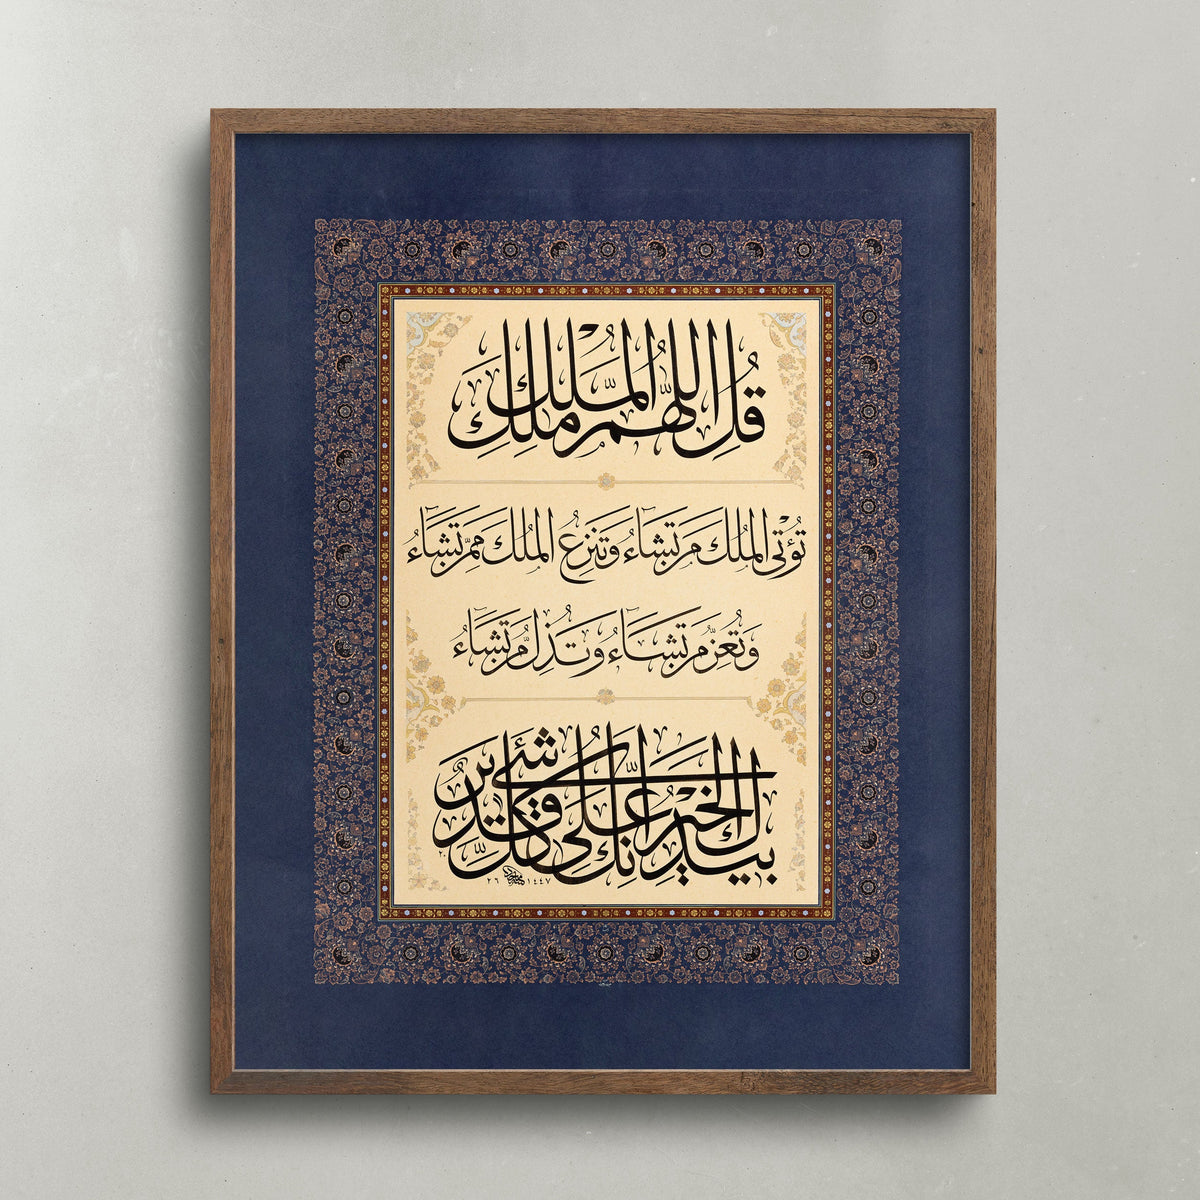 قُلِ اللَّهُمَّ مَالِكَ الْمُلْكِ
تُؤْتِي الْمُلْكَ مَن تَشَاءُ وَتَنزِعُ الْمُلْكَ مِمَّن تَشَاءُ
وَتُعِزُّ مَن تَشَاءُ وَتُذِلُّ مَن تَشَاءُ
بِيَدِكَ الْخَيْرُ إِنَّكَ عَلَىٰ كُلِّ شَيْءٍ قَدِيرٌ
١٤٤٧
٢٦